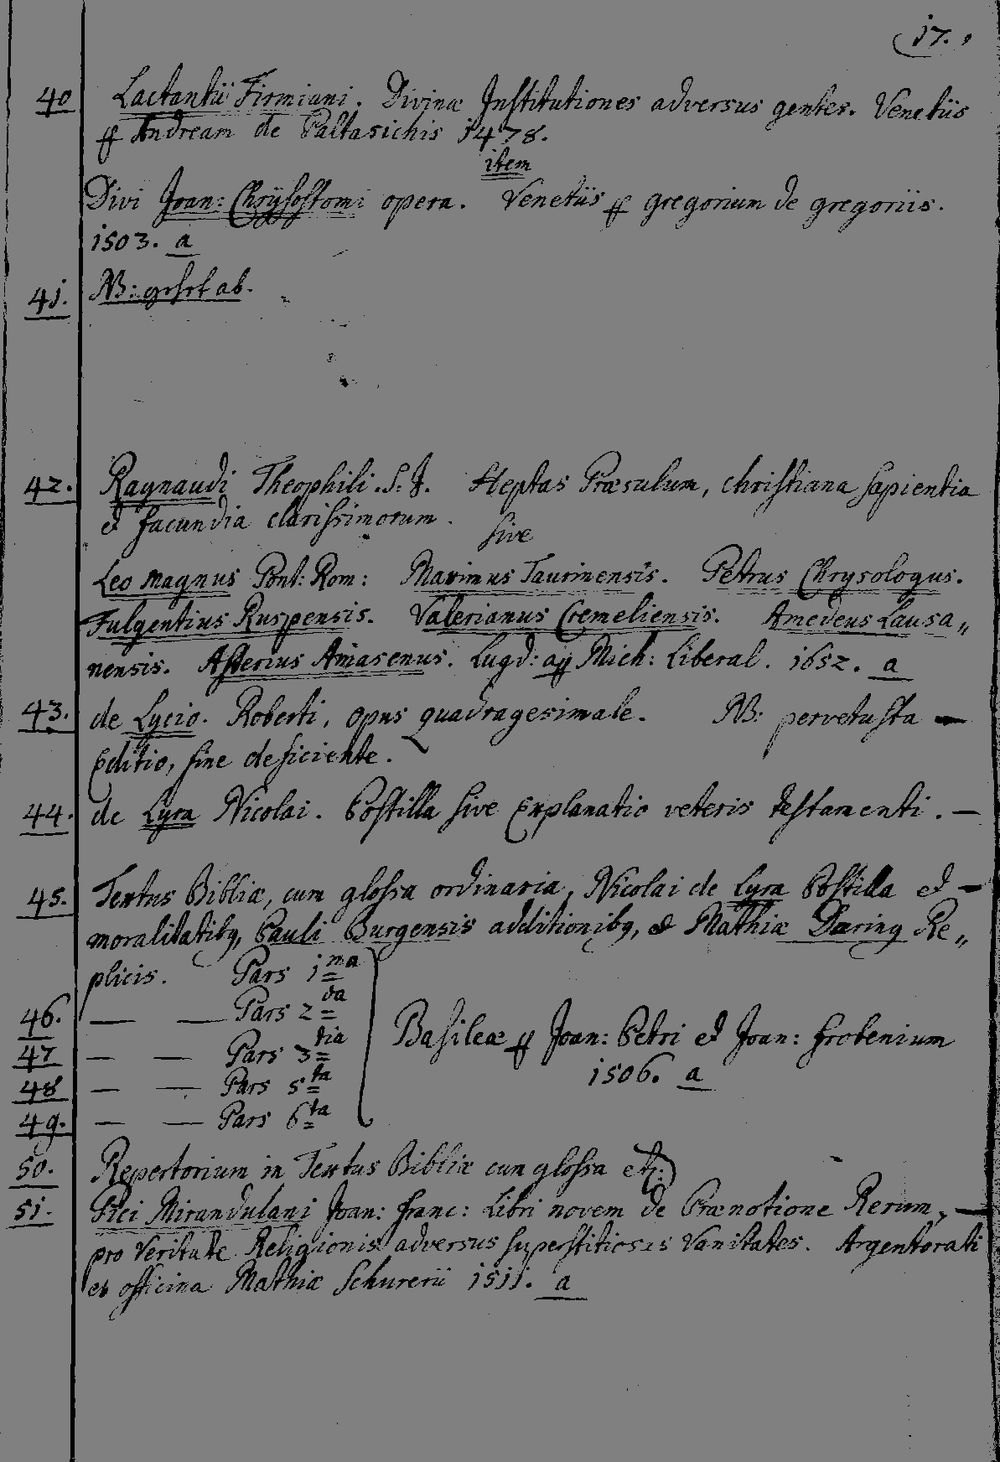 17.
40 Lactantii Firmiani. Divinæ Institutiones adversus gentes. Venetiis
Andream de Paltasichis 1478.
item
Divi Joan: Chrÿsostomi opera. Venetiis gregorium de gregoriis.
1503. a
41. NB: gehet ab.
42. Raynaudi Theophili. S: J. Heptas Præsulum, christiana sapientia
et facundia clarissimorum.
sive
Leo magnus Pont: Rom: Maximus Taurinensis. Petrus Chrysologus.
Fulgentius Ruspensis. Valerianus Cemeliensis. Amedeus Lausa„
nensis. Asterius Amasenus. Lugd: Mich: Liberal. 1652. a
43. de Lycio. Roberti, opus quadragesimale. NB: pervetusta —
Editio, fine deficiente.
44. de Lyra Nicolai. Postilla sive Explanatio veteris testamenti. —
45. Textus Bibliæ, cum glossa ordinaria, Nicolai de Lyra Postilla et —
moralitatibq, Pauli Burgensis additionibq, et Mathiæ Dæring Re„
plicis. Pars 1ma
46. — — Pars 2da
47 — — Pars 3tia Basileæ Joan: Petri et Joan: frobenium
48 — — Pars 5ta 1506. a
49. — — Pars 6ta
50. Repertorium in Textus Bibliæ cum glossa etc:)
51. Pici Mirandulani Joan: franc: Libri novem de Prænotione Rerum, —
pro Veritate Religionis adversus superstitiosas Vanitates. Argentorati
ex officina Mathiæ Schurerii 1511. a